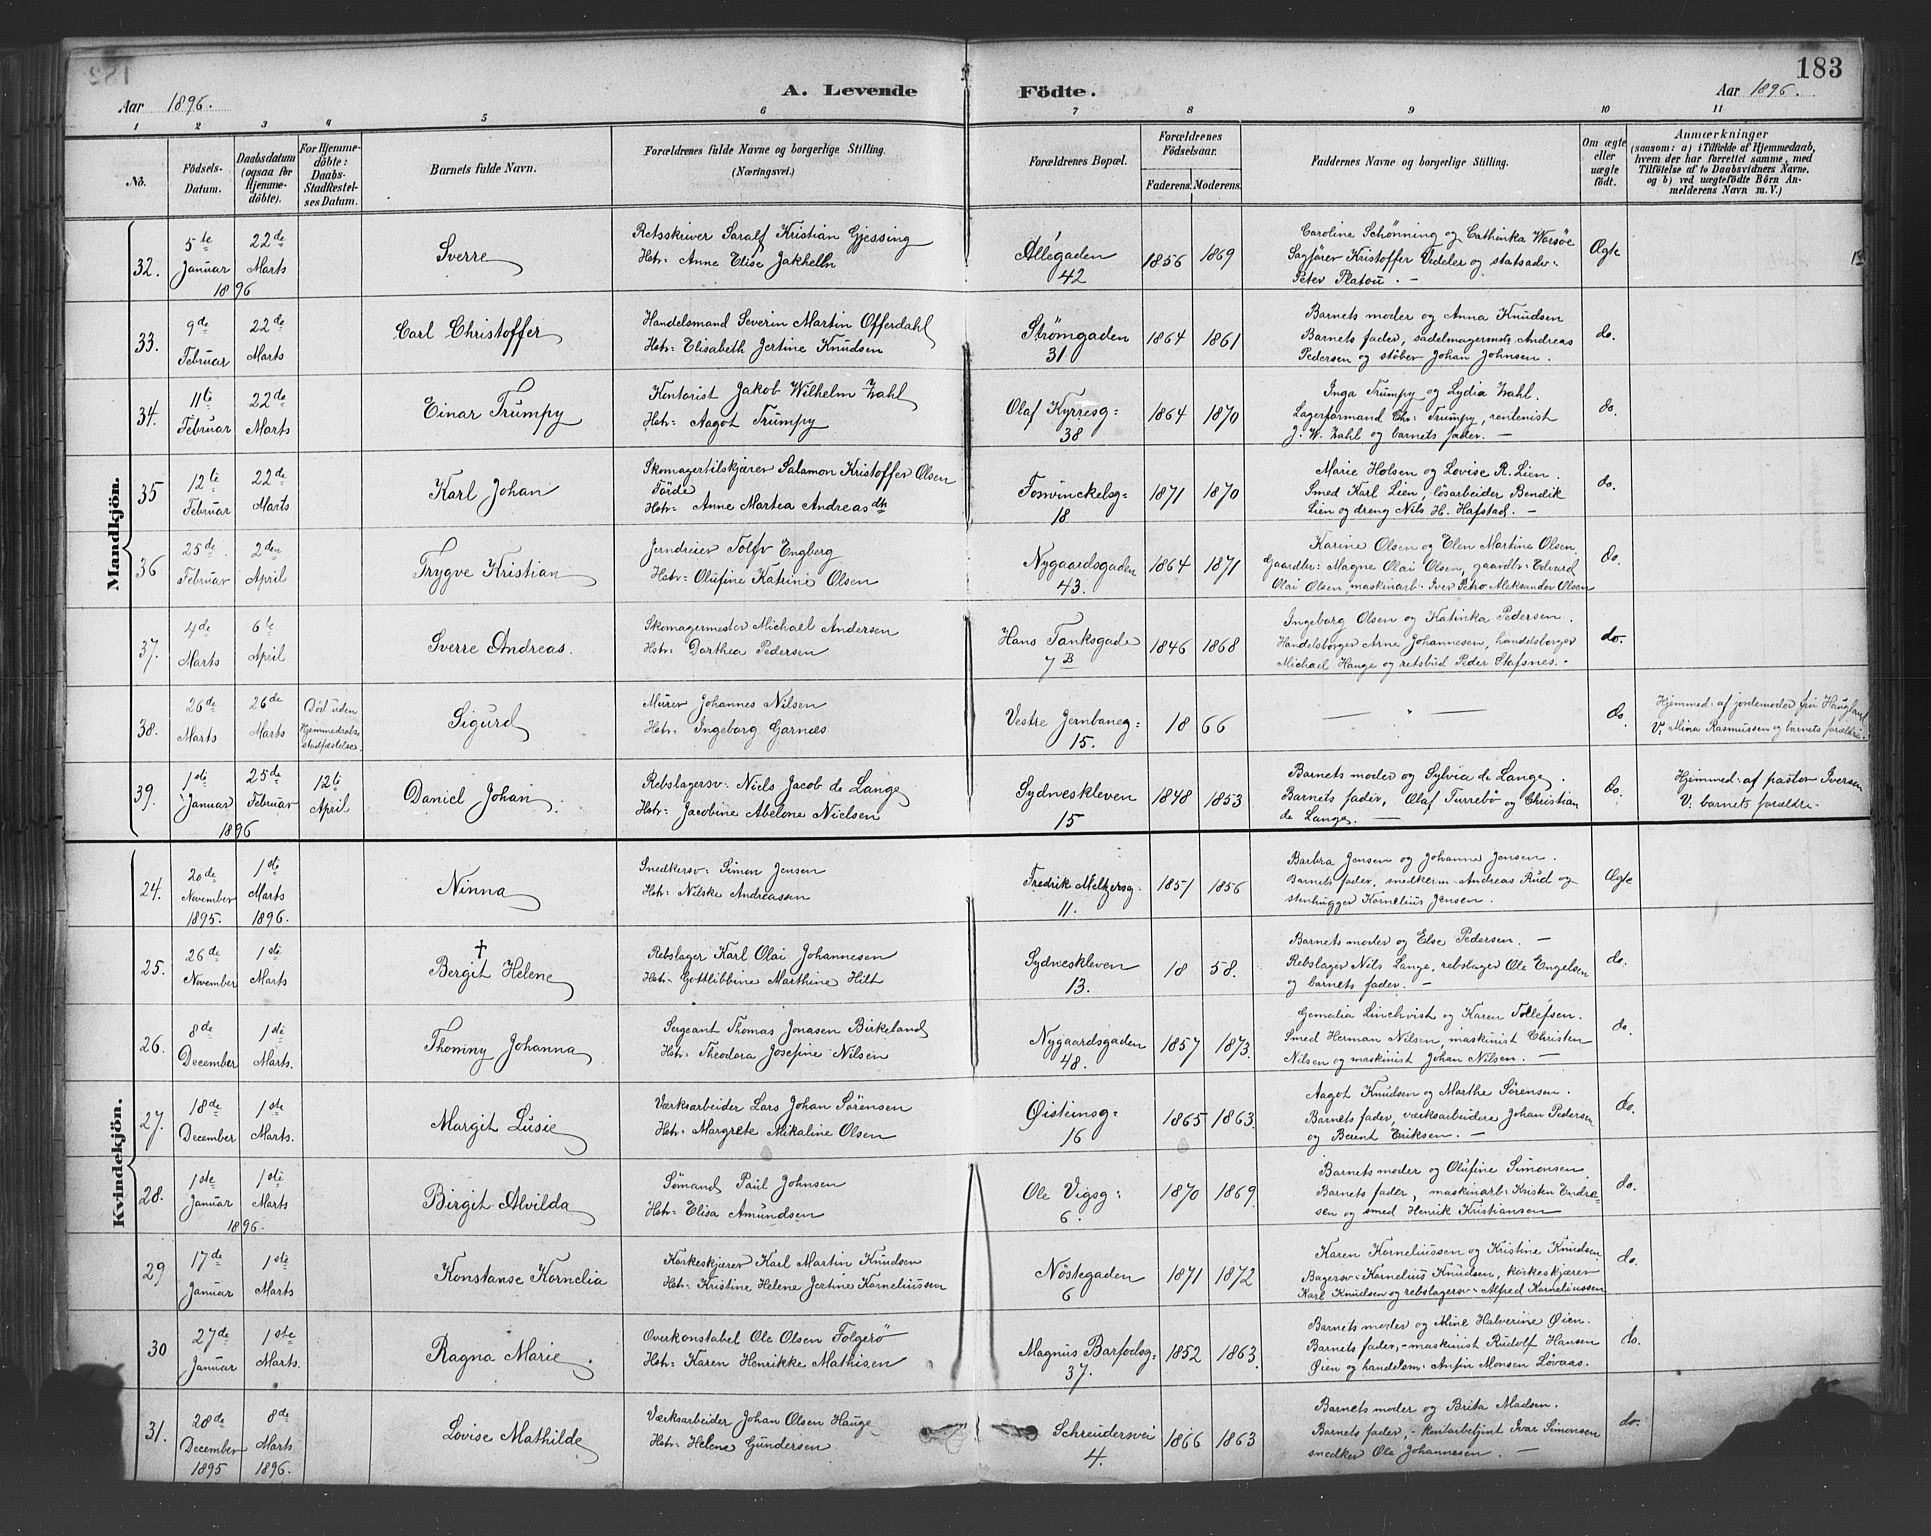 183
Aar 1896.
A. Levende
Födte.
Aar 1896.
1 2 3 4 5 6 7 8 9 10 11
No.
Födsels-
Datum.
Daabsdatum
(ogsaa for
Hjemme-
döbte).
For Hjemme-
döbte:
Daabs-
Stadfæstel-
ses Datum.
Barnets fulde Navn.
Forældrenes fulde Navne og borgerlige Stilling.
(Næringsvei.)
Forældrenes Bopæl.
Forældrenes
Födselsaar.
Faderens. Moderens.
Faddernes Navne og borgerlige Stilling.
Om ægte
eller
uægte
födt.
Anmærkninger
(saasom: a) i Tilfælde af Hjemmedaab,
hvem der har forrettet samme, med
Tilföielse af to Daabsvidners Navne,
og b) ved uægtefödte Börn An-
melderens Navn m. V.)
Mandkjön.
32.
5te
Januar
1896
22de
Marts
Sverre
Retsskriver Saralf Kristian Gjessing
Hstr: Anne Elise Jakhelln
Allegaden
42
1856 1869
Caroline Schönning og Cathinka Worsöe
Sagförer Kristoffer Dedeler og statsadv:
Peter Platou. -
Ægte
33.
9de
Februar
22de
Marts
Carl Christoffer
Handelsmand Severin Martin Offerdahl
Hstr: Elisabeth Jertine Knudsen
Strömgaden
31
1864 1861
Barnets moder og Anna Knudsen
Barnets fader, sadelmagermstr Andreas
Pedersen og stöber Johan Johnsen.
do.
34.
11te
Februar
22de
Marts
Einar Trumpy
Kontorist Jakob Wilhelm Zahl
Hstr: Aagot Trumpy
Olaf Kyrresg:
38
1864 1870
Inga Trumpy og Lydia Zahl.
Lagerformand Chr: Trumpy, rentenist
J. W. Zahl og barnets fader. -
do.
35
12te
Februar
22de
Marts
Karl Johan
Skomagertilskjærer Salamon Kristoffer Olsen
Förde
Hstr: Anne Martea Andreasdtr
Fosvinckelsg:
18
1871 1870
Marie Holsen og Lovise R. Lien.
Smed Karl Lien, lösarbeider Bendik
Lien og dreng Nils H. Hafstad. -
do.
36
25de
Februar
2den
April
Trygve Kristian
Jerndreier Tolfv Engberg
Hstr: Olufine Katrine Olsen
Nygaardsgaden
43.
1864 1871
Karine Olsen og Elen Martine Olsen.
Gaardbr: Magne Olai Olsen, gaardbr: Edvard
Olai Olsen, maskinarb: Iver Petro Aleksander Olsen
do.
37.
4de
Marts
6te
April
Sverre Andreas.
Skomagermester Michael Andersen
Hstr: Dorthea Pedersen
Hans Tanksgade
7B
1846 1868
Ingeborg Olsen og Katinka Pedersen.
Handelsborger Arne Johannesen, handelsborger
Michael Hauge og retsbud Peder Stafsnes. -
do.
38.
26de
Marts
26de
Marts
Död uden
Hjemmedaabs-
stadfæstelse.
Sigurd
Murer Johannes Nilsen
Hstr: Ingeborg Garnæs
Vestre Jernbaneg:
15.
1866
do.
Hjemmed: af jordemoder fru Haugland
V. Mina Rasmussen og barnets forældre.
39.
1ste
Januar
1896
25de
Februar
12te
April
Daniel Johan
Rebslagersv: Niels Jacob de Lange
Hstr: Jacobine Abelone Nielsen
Sydneskleven
15
1848 1853
Barnets moder og Sylvia de Lange.
Barnets fader, Olaf Turrebö og Christian
de Lange. -
do.
Hjemmed: af pastor Iversen
V: barnets forældre.
Kvindekjön.
24.
20de
November
1895.
1ste
Marts
1896.
Ninna
Snedkersv: Simon Jensen
Hstr: Nilske Andreassen
Fredrik Meltzersg.
11.
1851 1856
Barbra Jensen og Johanne Jensen.
Barnets fader, snedkerm: Andreas Rud og
stenhugger Kornelius Jensen.
Ægte
25.
26de
November
1ste
Marts
†
Bergit Helene
Rebslager Karl Olai Johannesen
Hstr: Gottlibbine Marthine Hilt
Sydneskleven
13.
1858.
Barnets moder og Else Pedersen. -
Rebslager Nils Lange, rebslager Ole Engelsen
og barnets fader. -
do.
26.
8de
December
1ste
Marts.
Thommy Johanna
Sergeant Thomas Jonasen Birkeland
Hstr: Theodora Josefine Nilsen
Nygaardsgaden
48.
1857 1873.
Gemalia Linchvist og Karen Tollefsen.
Smed Herman Nilsen, maskinist Christen
Nilsen og maskinist Johan Nilsen. -
do.
27.
18de
December
1ste
Marts.
Margit Lusie
Værksarbeider Lars Johan Sörensen
Hstr: Margrete Mikaline Olsen
Øisteinsg:
16
1865 1863.
Aagot Knudsen og Marthe Sörensen.
Barnets fader, værksarbeidere Johan Pedersen
og Berent Eriksen. -
do.
28.
1ste
Januar
1896.
1ste
Marts
Birgit Alvilda
Sömand Paul Johnsen
Hstr: Elisa Amundsen
Ole Vigsg:
6.
1870 1869.
Barnets moder og Olufine Simonsen.
Barnets fader, maskinarb: Kristen Endre-
sen og smed Henrik Kristiansen
do.
29
17de
Januar
1ste
Marts
Konstanse Kornelia
Korkeskjærer Karl Martin Knudsen
Hstr: Kristine Helene Jertine Korneliussen
Nöstegaden
6
1871 1872
Karen Korneliussen og Kristine Knudsen
Bagersv: Kornelius Knudsen, korkeskjærer
Karl Knudsen og rebslagersv: Alfred Korneliussen
do.
30
27de
Januar
1ste
Marts.
Ragna Marie.
Overkonstabel Ole Olsen Folgerö
Hstr: Karen Henrikke Mathisen
Magnus Barfodsg:
37.
1852 1863.
Barnets moder og Mine Halverine Øien.
Barnets fader, - maskinist Rudolf Hansen
Øien og handelsm: Anfin Monsen Lövaas.
do.
31.
28de
December
1895
8de
Marts
1896.
Lovise Mathilde
Værksarbeider Johan Olsen Hauge
Hstr: Helene Gundersen
Schreudersvei
4.
1866 1863
Barnets moder og Brita Madsen.
Barnets fader, - kontorbetjent Ivar Simonsen
snedker Ole Johannesen. -
do.